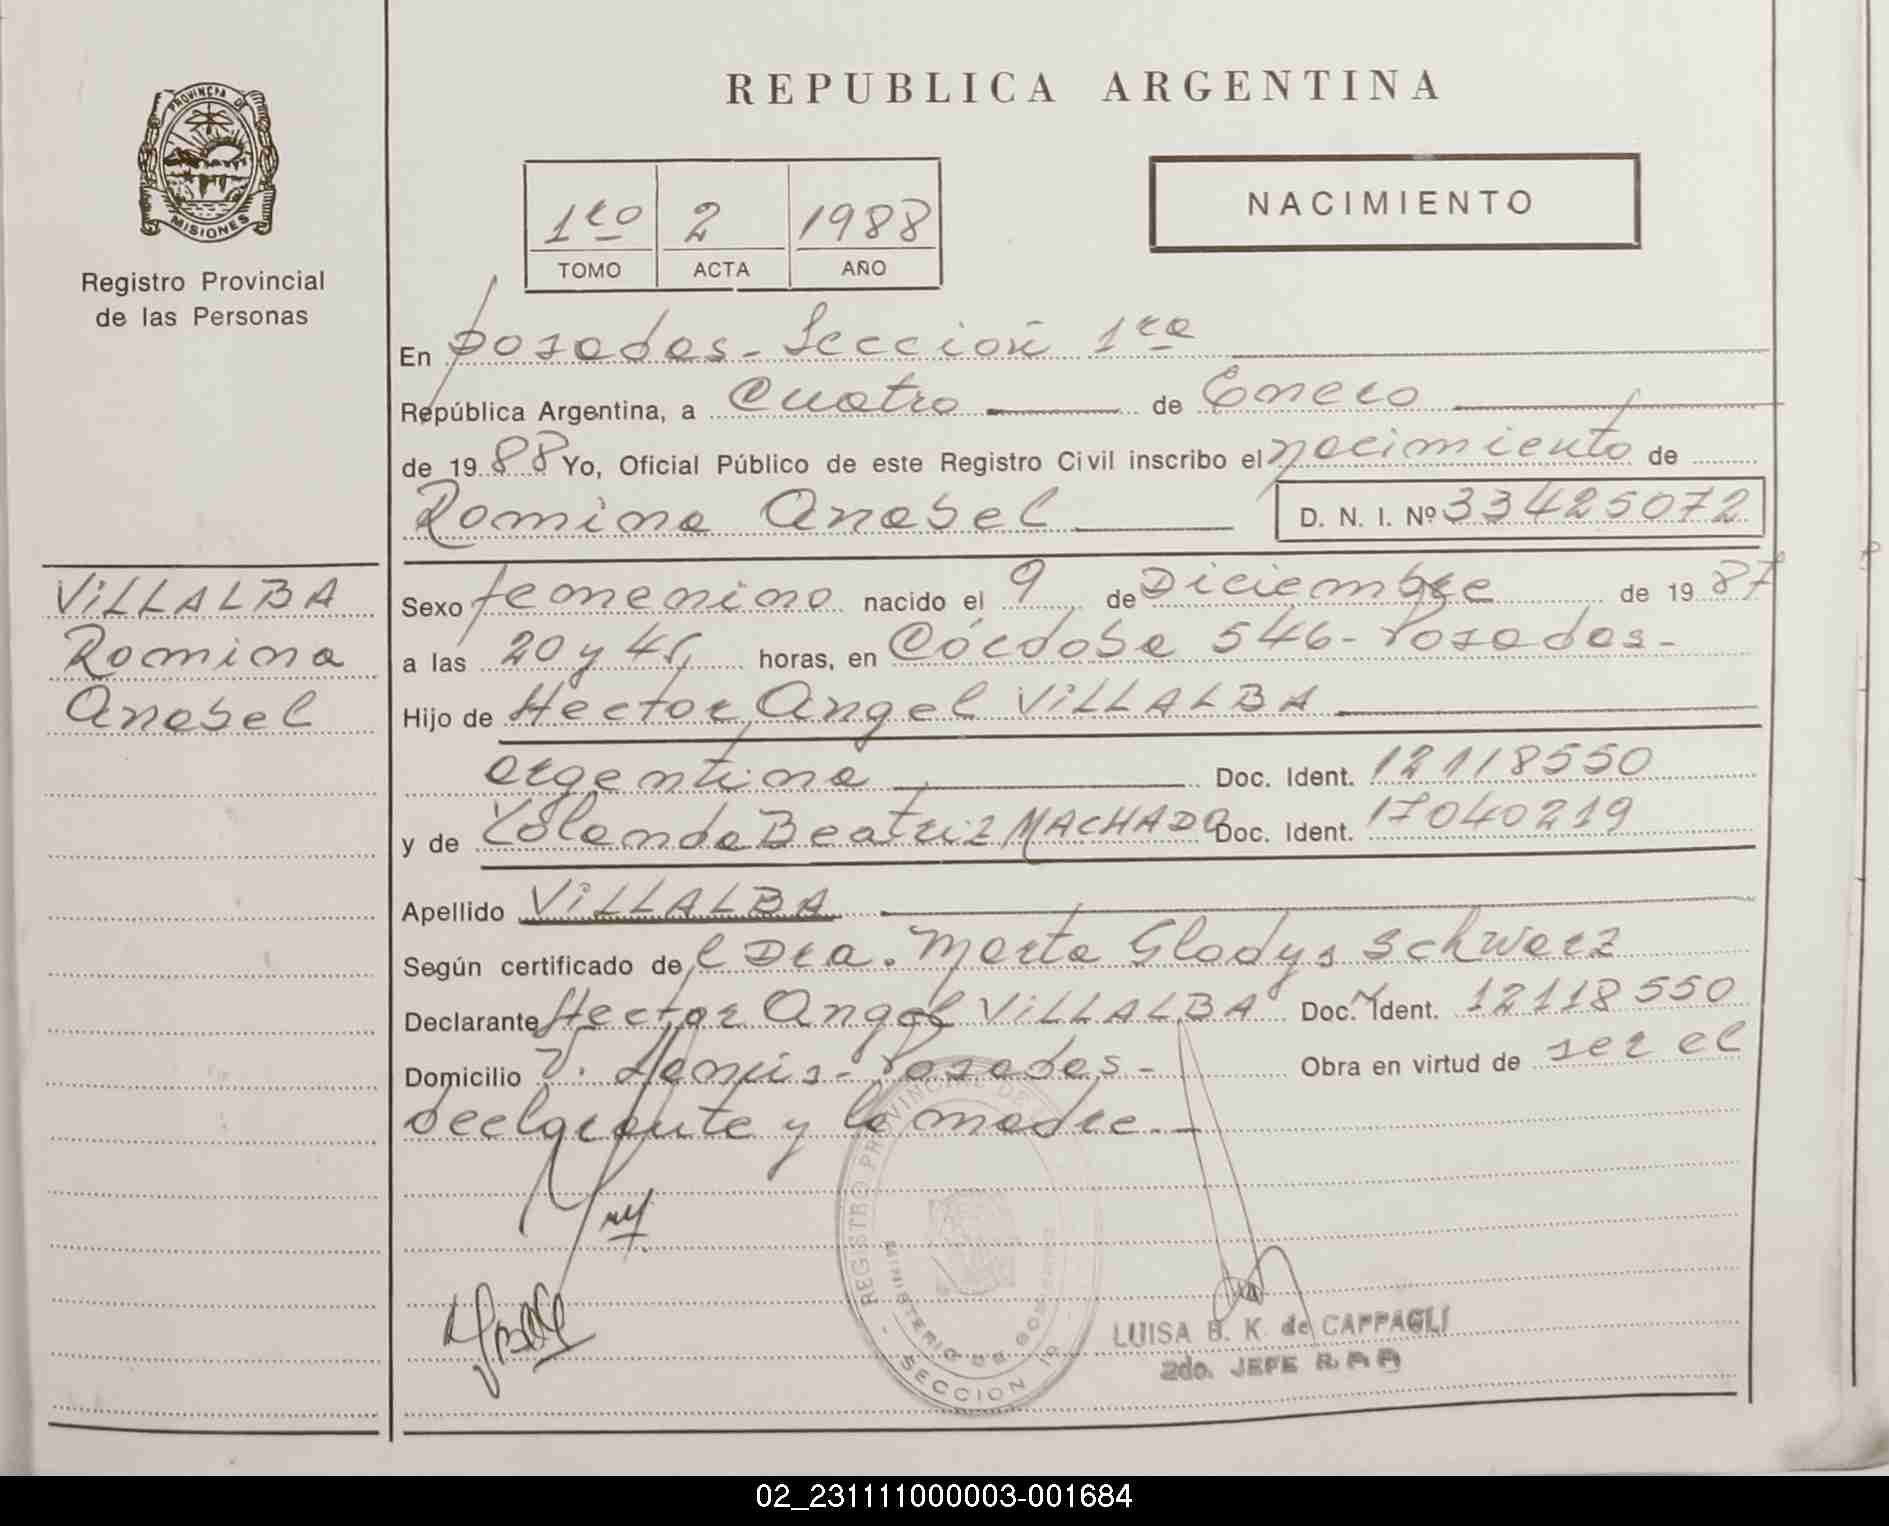 REPUBLICA ARGENTINA
PROVINCIA DE
MISIONES
Registro Provincial
de las Personas
1ro 2 1988
TOMO ACTA AÑO
NACIMIENTO
En Posadas - Sección 1ra
República Argentina, a Cuatro de Enero
de 1988 Yo, Oficial Público de este Registro Civil inscribo el nacimiento de
Romina Anabel D. N. I. Nº 33425072
VILLALBA
Romina
Anabel
Sexo femenino nacido el 9 de Diciembre de 1987
a las 20 y 45 horas, en Córdoba 546 - Posadas -
Hijo de Hector Angel VILLALBA
argentina Doc. Ident. 12118550
y de Yolanda Beatriz MACHADO Doc. Ident. 17040219
Apellido VILLALBA
Según certificado de l Dra. Marta Gladys Schwarz
Declarante Hector Angel VILLALBA Doc. Ident. 12118550
Domicilio V. Lanús - Posadas - Obra en virtud de ser el
declarante y la madre. -
REGISTRO PROVINCIAL DE
MINISTERIO DE GOBIERNO
- SECCION 1a -
LUISA B. K. de CAPPAGLI
2do. JEFE
02_231111000003-001684